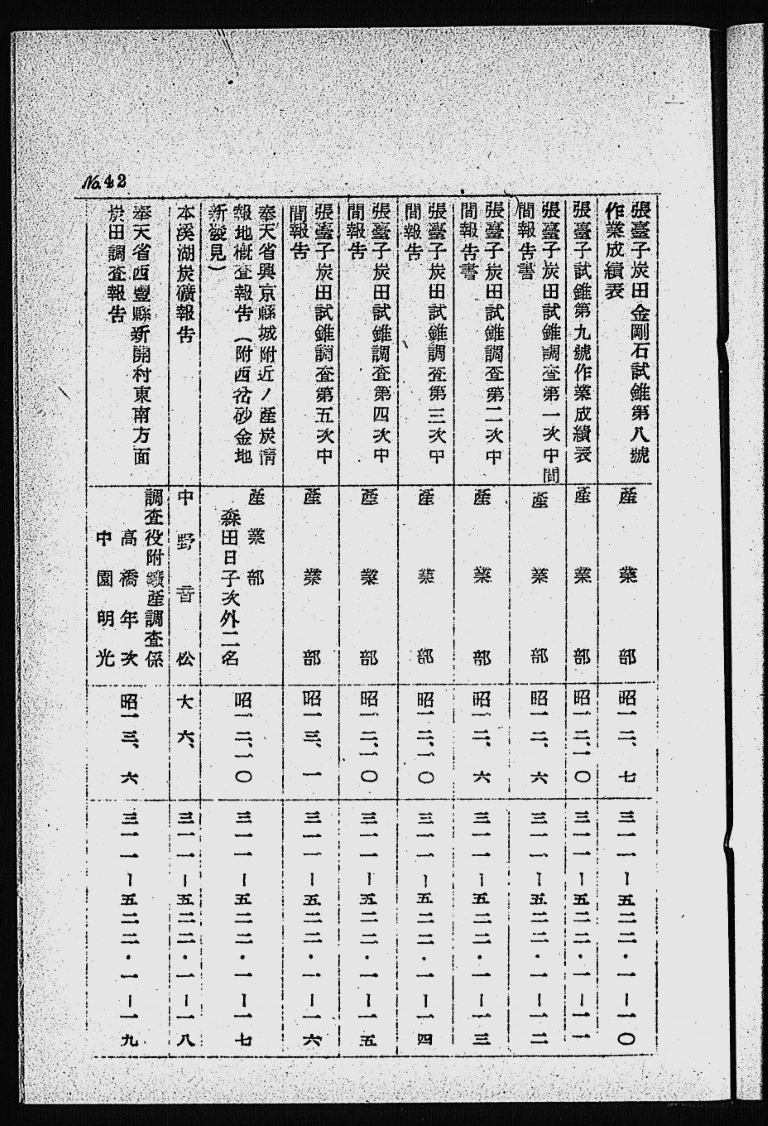 No.42
張臺子炭田金剛石試錐第八號
作業成績表
産業部
昭一二、七
三一一ー五二二・一ー一〇
張臺子試錐第九號作業成績表
産業部
昭一二、一〇
三一一ー五二二・一ー一一
張臺子炭田試錐調査第一次中間
間報告書
産業部
昭一二、六
三一一ー五二二・一ー一二
張臺子炭田試錐調査第二次中
間報告書
産業部
昭一二、六
三一一ー五二二・一ー一三
張臺子炭田試錐調査第三次中
間報告
産業部
昭一二、一〇
三一一ー五二二・一ー一四
張臺子炭田試錐調査第四次中
間報告
産業部
昭一二、一〇
三一一ー五二二・一ー一五
張臺子炭田試錐調査第五次中
間報告
産業部
昭一三、一
三一一ー五二二・一ー一六
奉天省興京縣城附近ノ産炭情
報地概査報告（附西岔砂金地
新發見）
産業部
森田日子次外二名
昭一二、一〇
三一一ー五二二・一ー一七
本溪湖炭礦報告
中野音松
大六、
三一一ー五二二・一ー一八
奉天省西豐縣新開村東南方面
炭田調査報告
調査役附鑛産調査係
高橋年次
中園明光
昭一三、六
三一一ー五二二・一ー一九